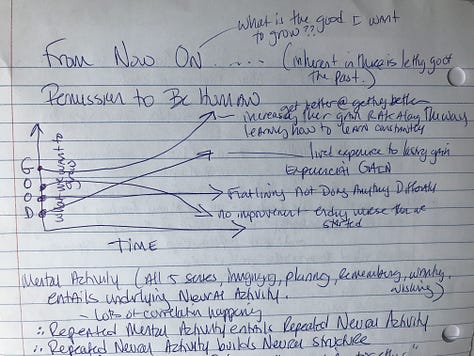 what is the good I want
to grow??
From Now On ..... (inherent in these is letting go of
the past.)
Permission to Be Human
get better @ getting better
increasing their gain RAte Along The way
learning how to learn constantly
lived exposure to learning gain
Experiential GAIN
Flatlining Not Doing Anything Differently
no improvement ending worse than we
started
GOOD
what we want to
grow
TIME
Mental Activity (All 5 senses, imagining, planning, Remembering, worrying,
wishing)
entails underlying Neural Activity.
- Lots of correlation happening
∴ Repeated Mental Activity entails Repeated Neural Activity
∴ Repeated Neural Activity builds Neural structure